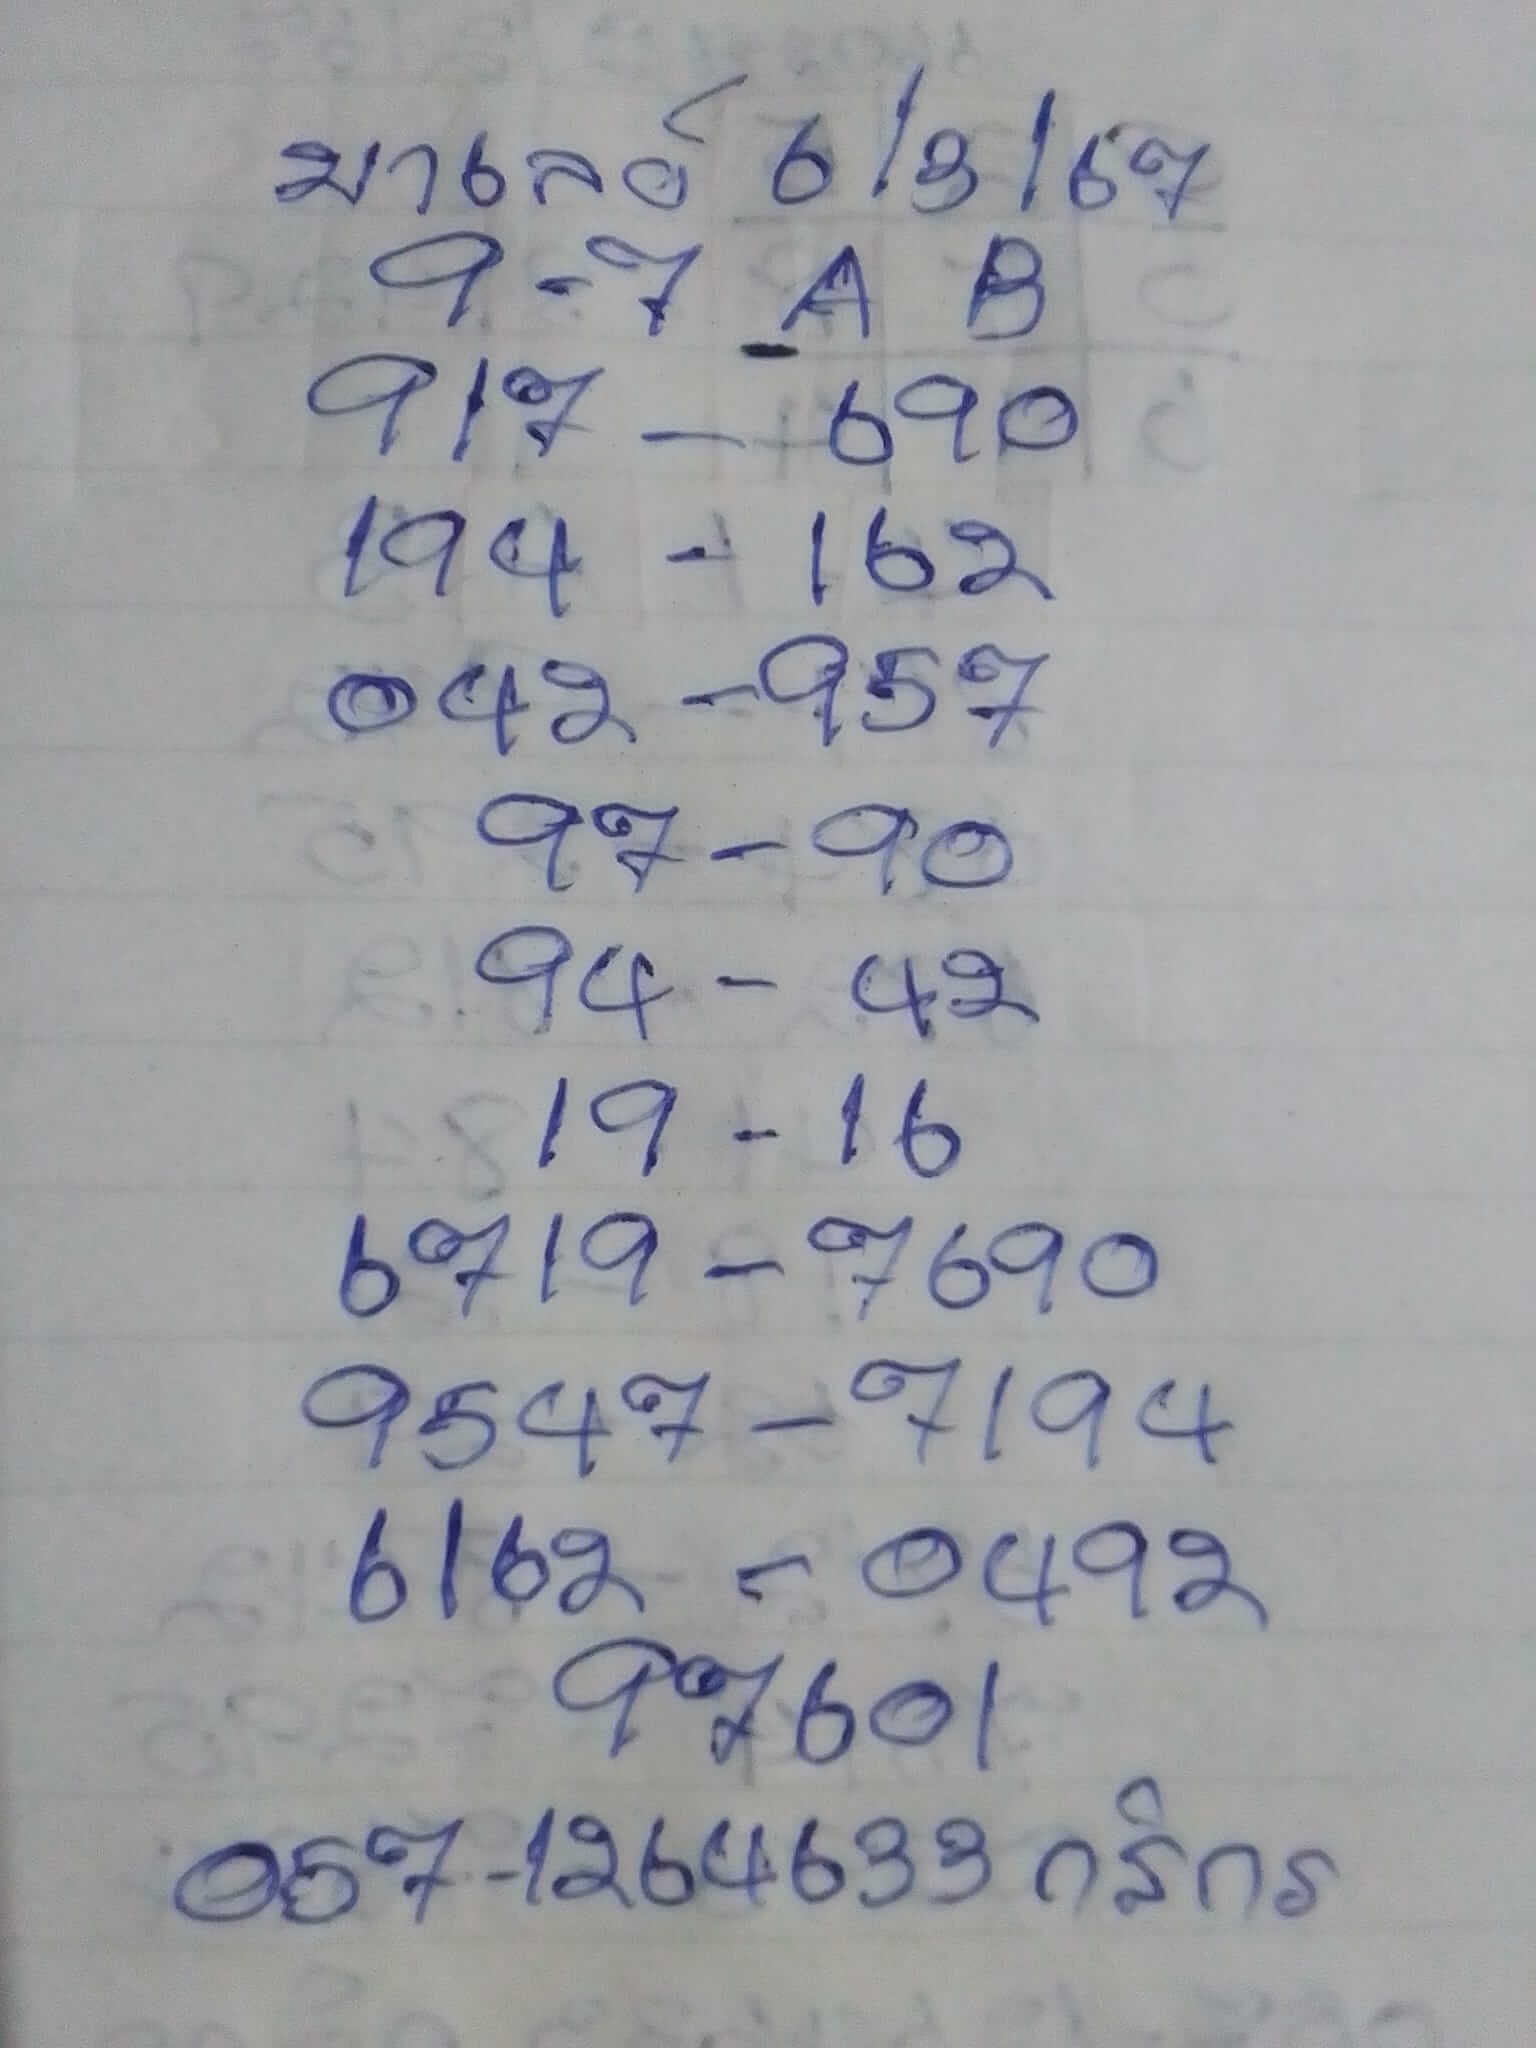 มาเลย์ 6/3/67
9-7 A B
917 - 690
194 - 162
042 - 957
97 - 90
94 - 42
19 - 16
6719 - 7690
9547 - 7194
6162 - 0492
97601
057-1264633 กสิกร